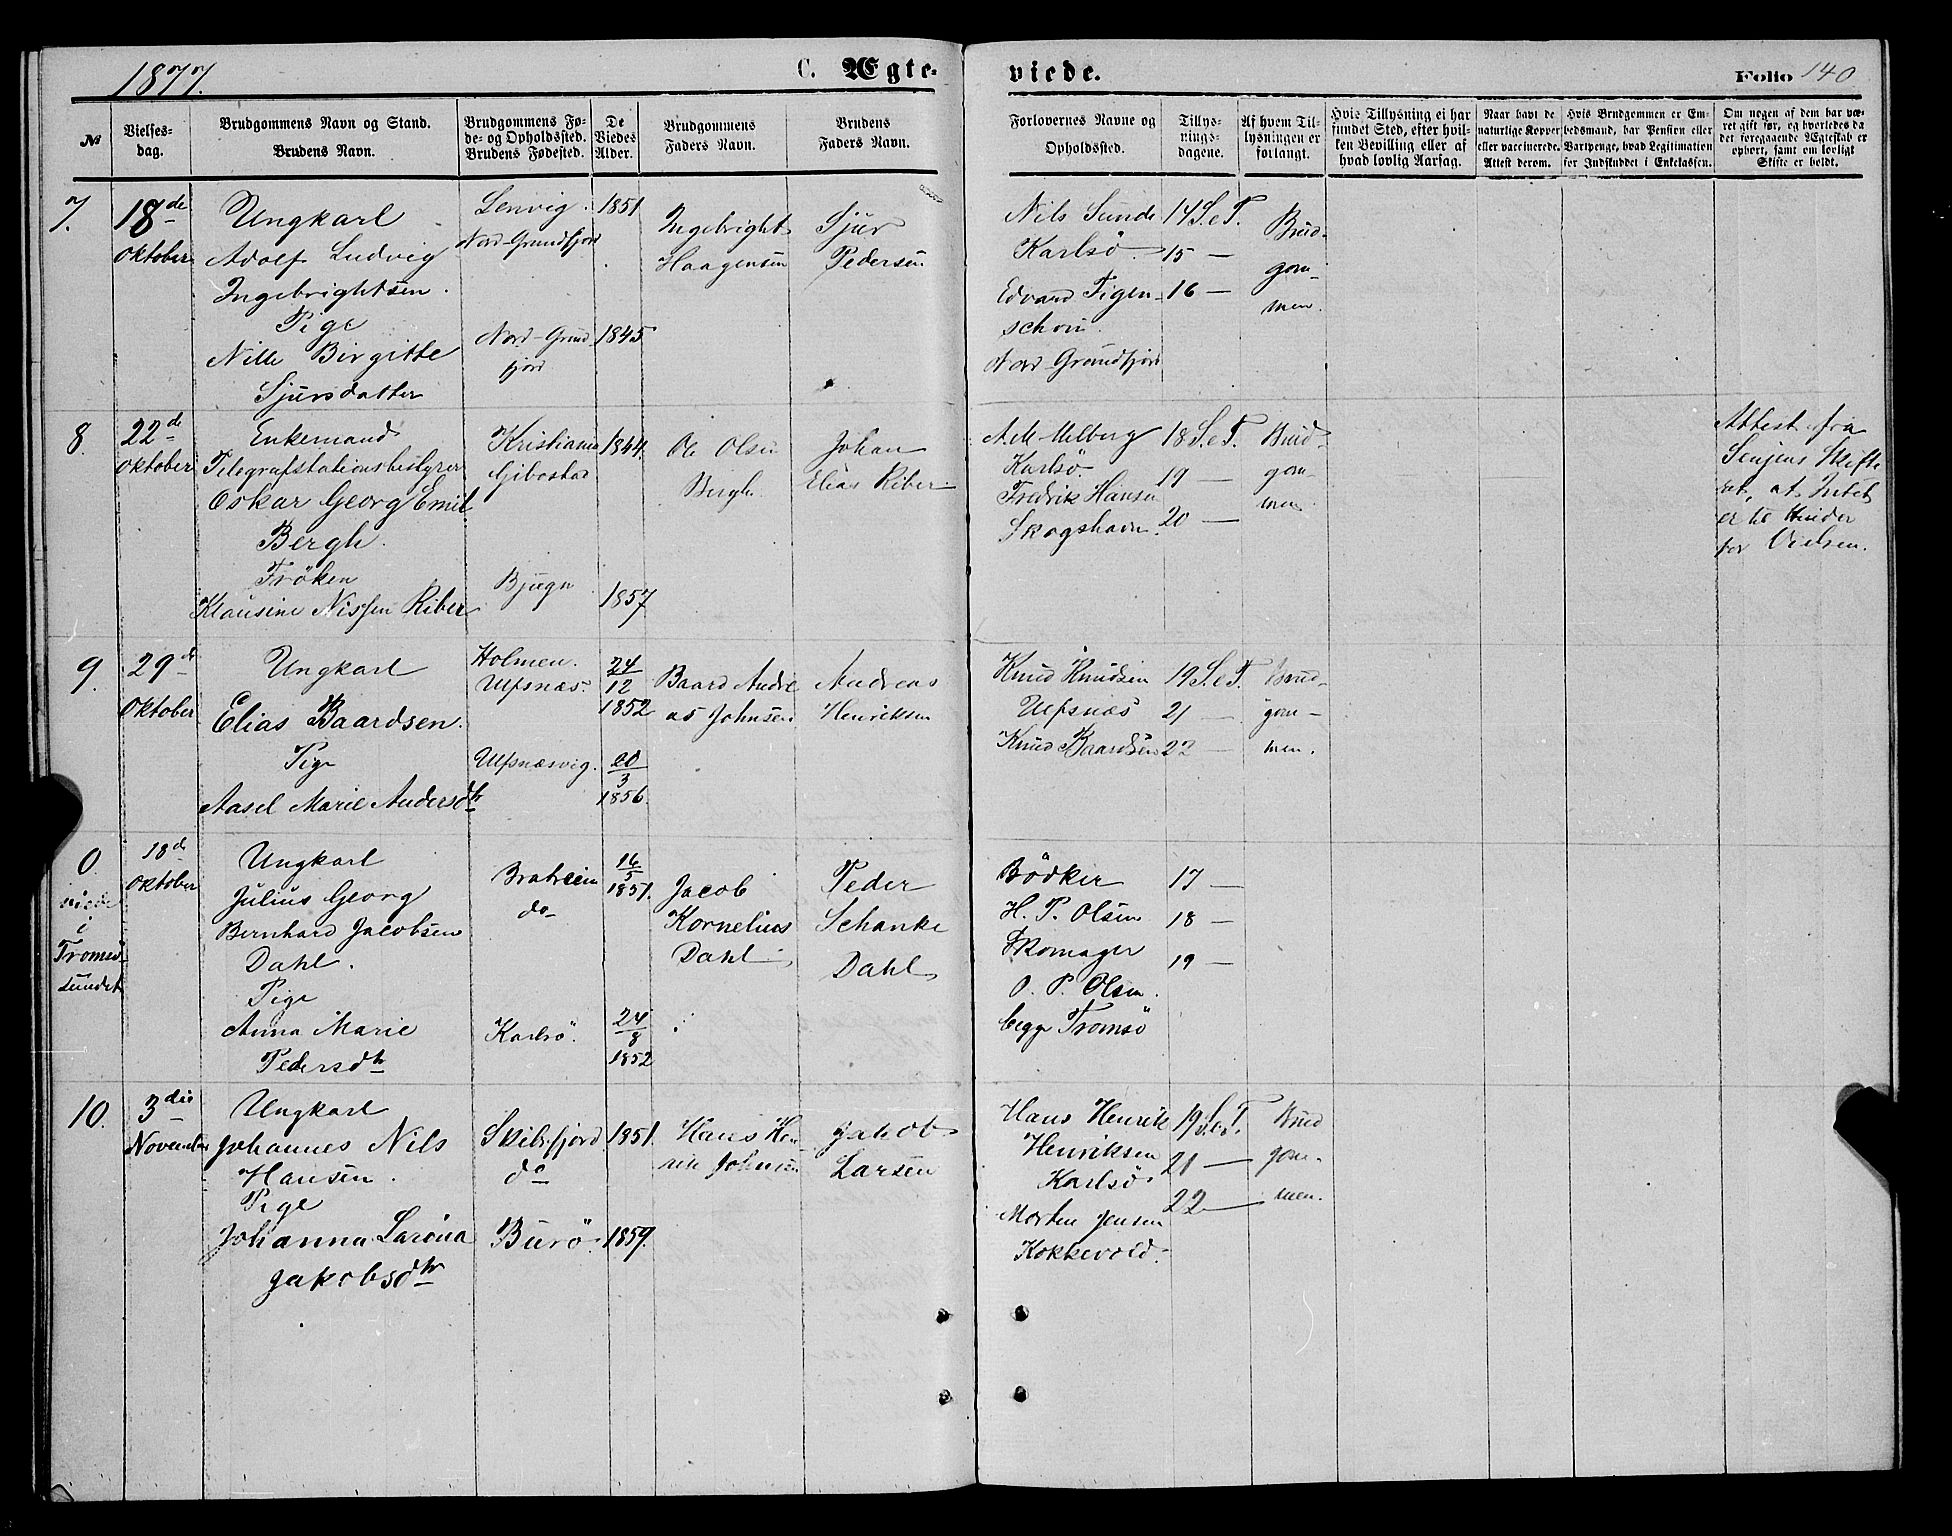 1877.
C. Ægte-
viede.
Folio 140
№
Vielses-
dag.
Brudgommens Navn og Stand.
Brudens Navn.
Brudgommens Fø-
de- og Opholdssted.
Brudens Fødested.
De
Viedes
Alder.
Brudgommens
Faders Navn.
Brudens
Faders Navn.
Forlovernes Navne og
Opholdssted.
Tillys-
nings-
dagene.
Af hvem Til-
lysningen er
forlangt.
Hvis Tillysning ei har
fundet Sted, efter hvil-
ken Bevilling eller af
hvad lovlig Aarsag.
Naar havt de
naturlige Kopper
eller vaccinerede.
Attest derom.
Hvis Brudgommen er Em-
bedsmand, har Pension eller
Vartpenge, hvad Legitimation
for Indskuddet i Enkekassen.
Om nogen af dem har væ-
ret gift før, og hvorledes da
det foregaaende Ægteskab er
ophørt, samt om lovligt
Skifte er holdt.
7.
18de
Oktober
Ungkarl
Adolf Ludvig
Ingebrightsen.
Pige
Nille Birgitte
Sjursdatter
Lenvig.
Nord-Grundfjord
Nord-Grund
fjord
1851
1845
Ingebright
Haagensen
Sjur
Pedersen
Nils Sunde
Karlsö
Edvard Figen-
schou.
Nord-Grundfjord
14 S.e.T.
15 —
16 —
Brud-
gom-
men.
8.
22de
Oktober
Enkemand
Telegrafstationsbestyrer
Oskar Georg Emil
Bergh.
Fröken
Klausine Nissen Riber
Kristiania
Gibostad
Bjugn
1844.
1857
Ole Olsen
Bergh.
Johan
Elias Riber.
Melberg
Karlsö
Fredrik Hansen
Skogshavn.
18 S.e.T.
19 —
20 —
Brud-
gom-
men
Attest fra
Senjens Skifte
ret, at Intet
er til Hinder
for Vielsen.
9.
29de
Oktober
Ungkarl
Elias Baardsen.
Pige
Aasel Marie Andersdtr
Holmen.
Ulfsnæs.
Ulfsnæsvig.
24
12
1852
20
3
1856.
Baard Andre
as Johnsen
Andreas
Henriksen
Knud Knudsen
Ulfsnæs
Knud Baardsen
19 S.e.T.
21 —
22 —
Brud-
gom-
men.
0.
viede
i
Tromsö
sundet
18de
Oktober
Ungkarl
Julius Georg
Bernhard Jacobsen
Dahl.
Pige
Anna Marie
Pedersdtr
do
Karlsö.
16
5
1851.
24
8
1852
Jacob
Kornelius
Dahl
Peder
Schanke
Dahl
Bödker
H. P. Olsen
Skomager
O. P. Olsen.
begge Tromsö
17 —
18 —
19 —
10.
3die
November
Ungkarl
Johannes Nils
Hansen.
Pige
Johanna Laróna
Jakobsdtr
Skibsfjord
do
Burö.
1851.
1859.
Hans Hen
rik Johnsen
Jakob
Larsen
Hans Henrik
Henriksen
Karlsö.
Morten Jensen
Kokkevold.
19 S.e.T.
21 —
22 —
Brud
gom-
men.